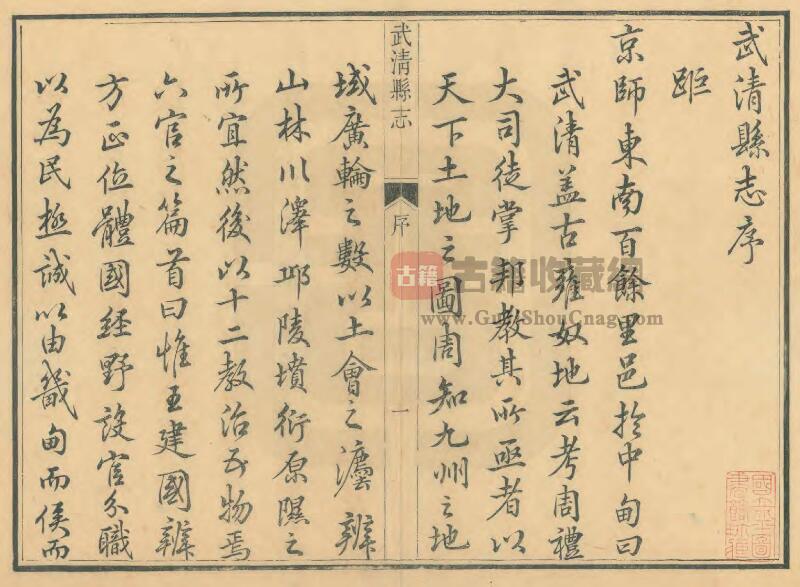 武清縣志序
距
京師東南百餘里邑於中甸曰
武清盖古雍奴地云考周禮
大司徒掌邦教其所亟者以
天下土地之圖周知九州之地
武清縣志
序
一
域廣輪之數以土會之灋辨
山林川澤邱陵墳衍原隰之
所宜然後以十二教治民物焉
六官之篇首曰惟王建國辨
方正位體國経野設官分職
以為民極誠以由畿甸而侯而
古籍
古籍收藏網
www.GuJiShouCnag.com